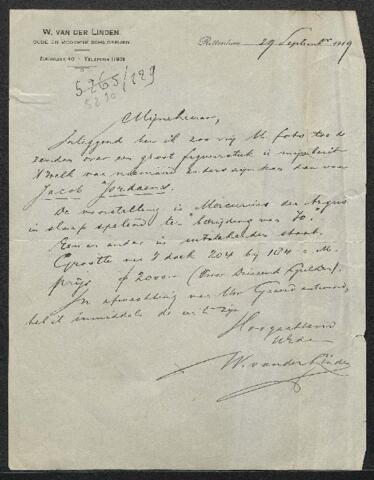 W. VAN DER LINDEN.
OUDE EN MODERNE SCHILDERIJEN
- TELEFOON 11908
Rotterdam, 29 September 1919
5265/129
5290
Mijnheer,
Inleggend ben ik zoo vrij U foto toe te
zenden over een groot figuurstuk in mijn bezit
't welk van niemand anders zijn kan dan van
Jacob Jordaens.
De voorstelling is Mercurius die Argus
in slaap spelend ter bevrijding van Io.
Een en ander in uitstekenden staat.
Grootte van 't doek 204 bij 184 c.M.
prijs f 2000.- (Twee Duizend Gulden).
In afwachting van Uw Geëerd antwoord,
heb ik inmiddels de eer te zijn
Hoogachtend
UEd
W. van der Linden